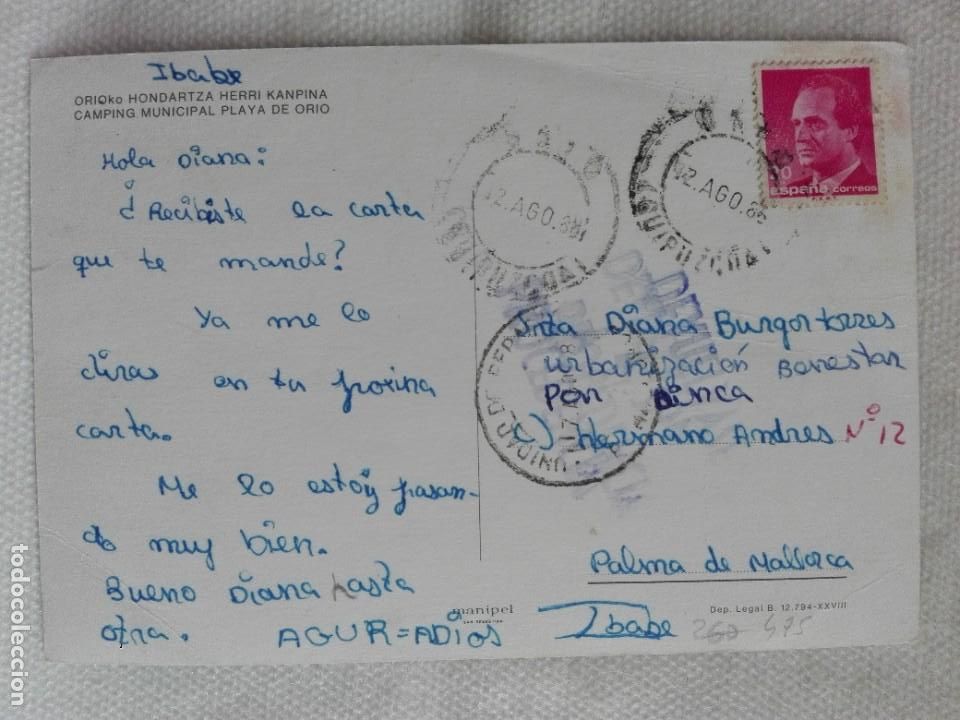 Ibabe
ORIOko HONDARTZA HERRI KANPINA
CAMPING MUNICIPAL PLAYA DE ORIO
Hola Diana:
¿Recibiste la carta
que te mande?
Ya me lo
diras en tu proxina
carta.
Me lo estoy pasan-
do muy bien.
Bueno Diana hasta
otra. AGUR=ADIOS
ORIO
12.AGO.86
(GUIPUZCOA)
ORIO
12.AGO.86
(GUIPUZCOA)
10
españa correos
Srta Diana Burgortorres
urbanización Bonestar
Pon
C) Hermano Andres Nº 12
Palma de Mallorca
Ibabe
manipel
SAN SEBASTIAN
Dep. Legal B. 12.794-XXVIII
475
todocoleccion.net